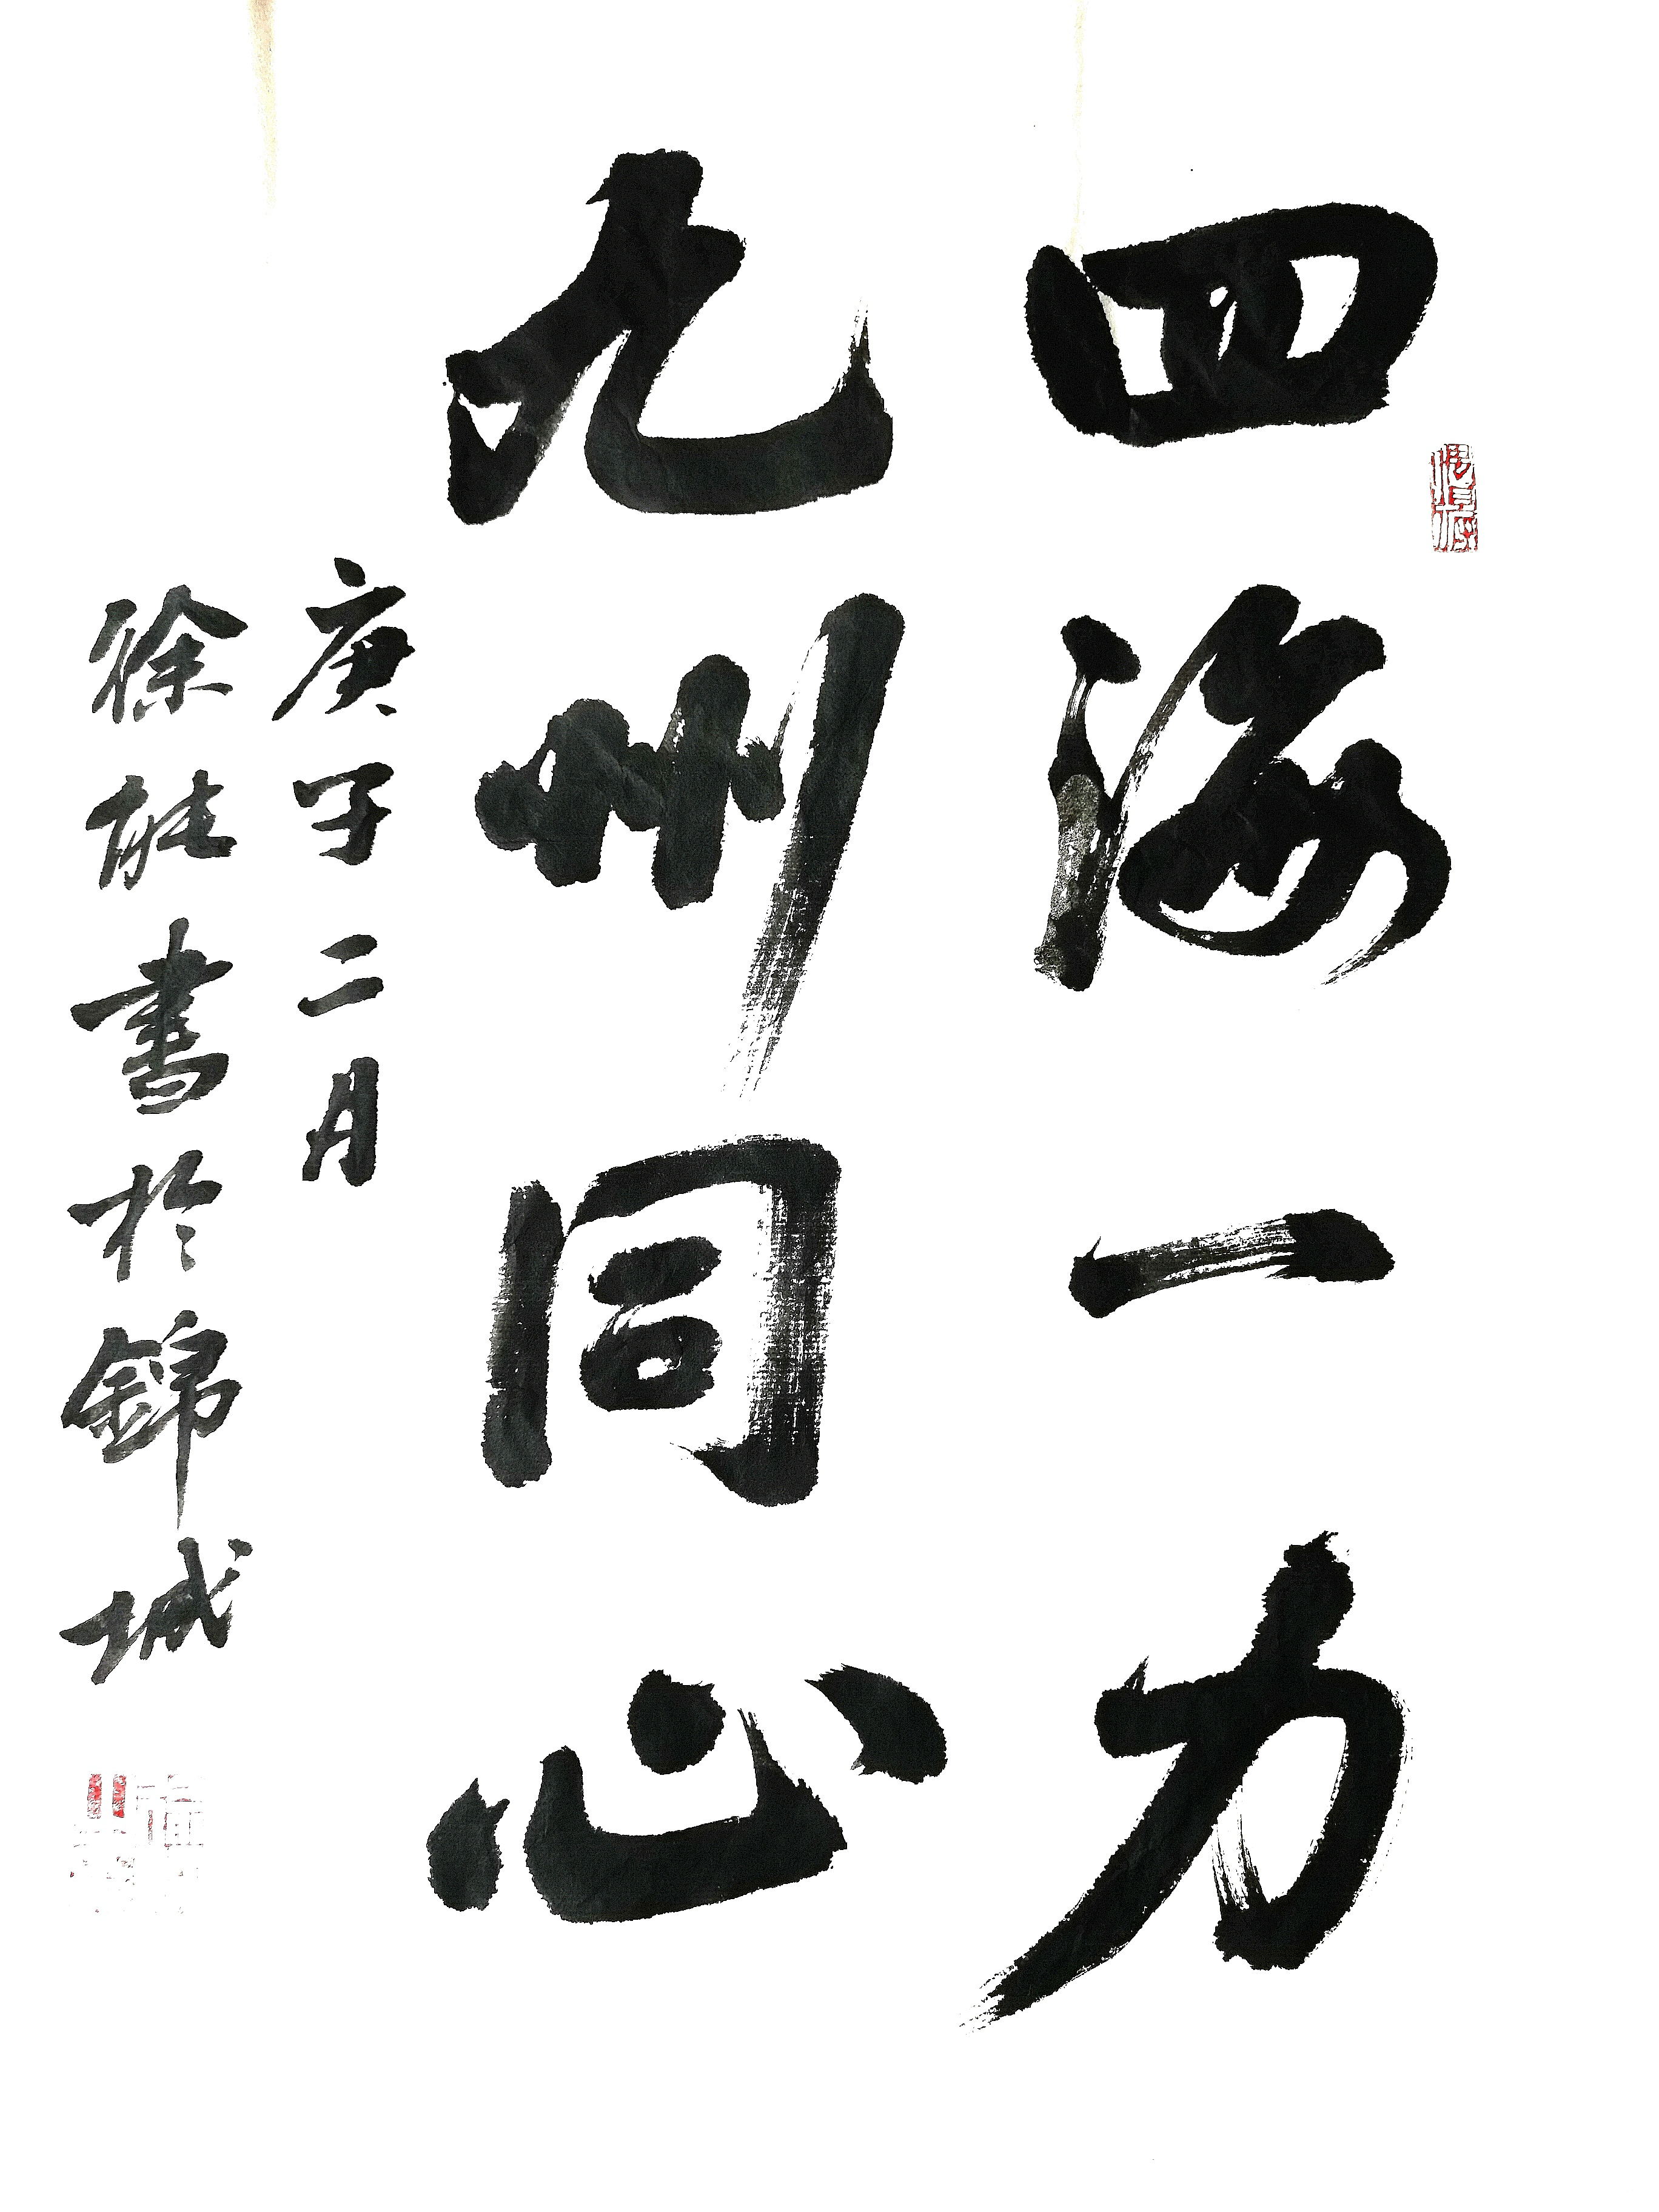 四海一力
九州同心
庚子二月
徐能書於錦城